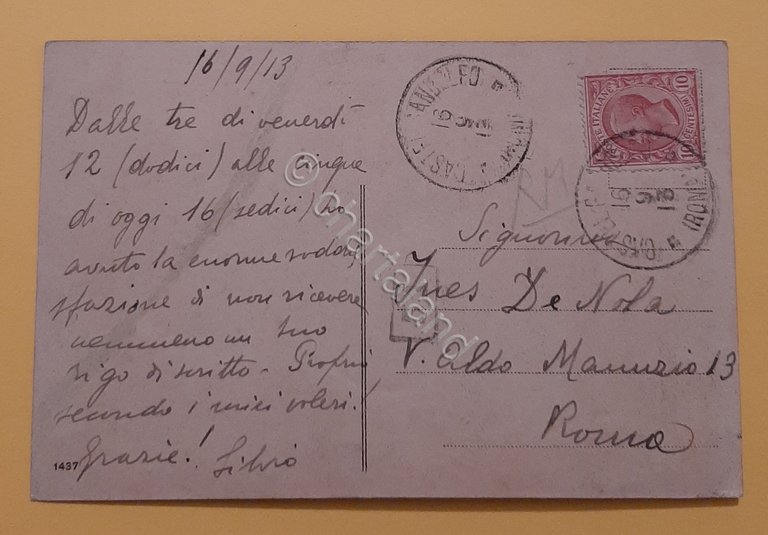 16/9/13
Dalle tre di venerdì
12 (dodici) alle cinque
di oggi 16 (sedici) ho
avuto la enorme soddi
sfazione di non ricevere
nemmeno un tuo
rigo di scritto - Proprio
secondo i miei voleri!
Grazie! Silvio
1437
CASTEL GANDOLFO
POSTE ITALIANE
10
CENTESIMI
10
RM
Signorina
Ines De Nola
V. Aldo Manuzio 13
Roma
© chartaland